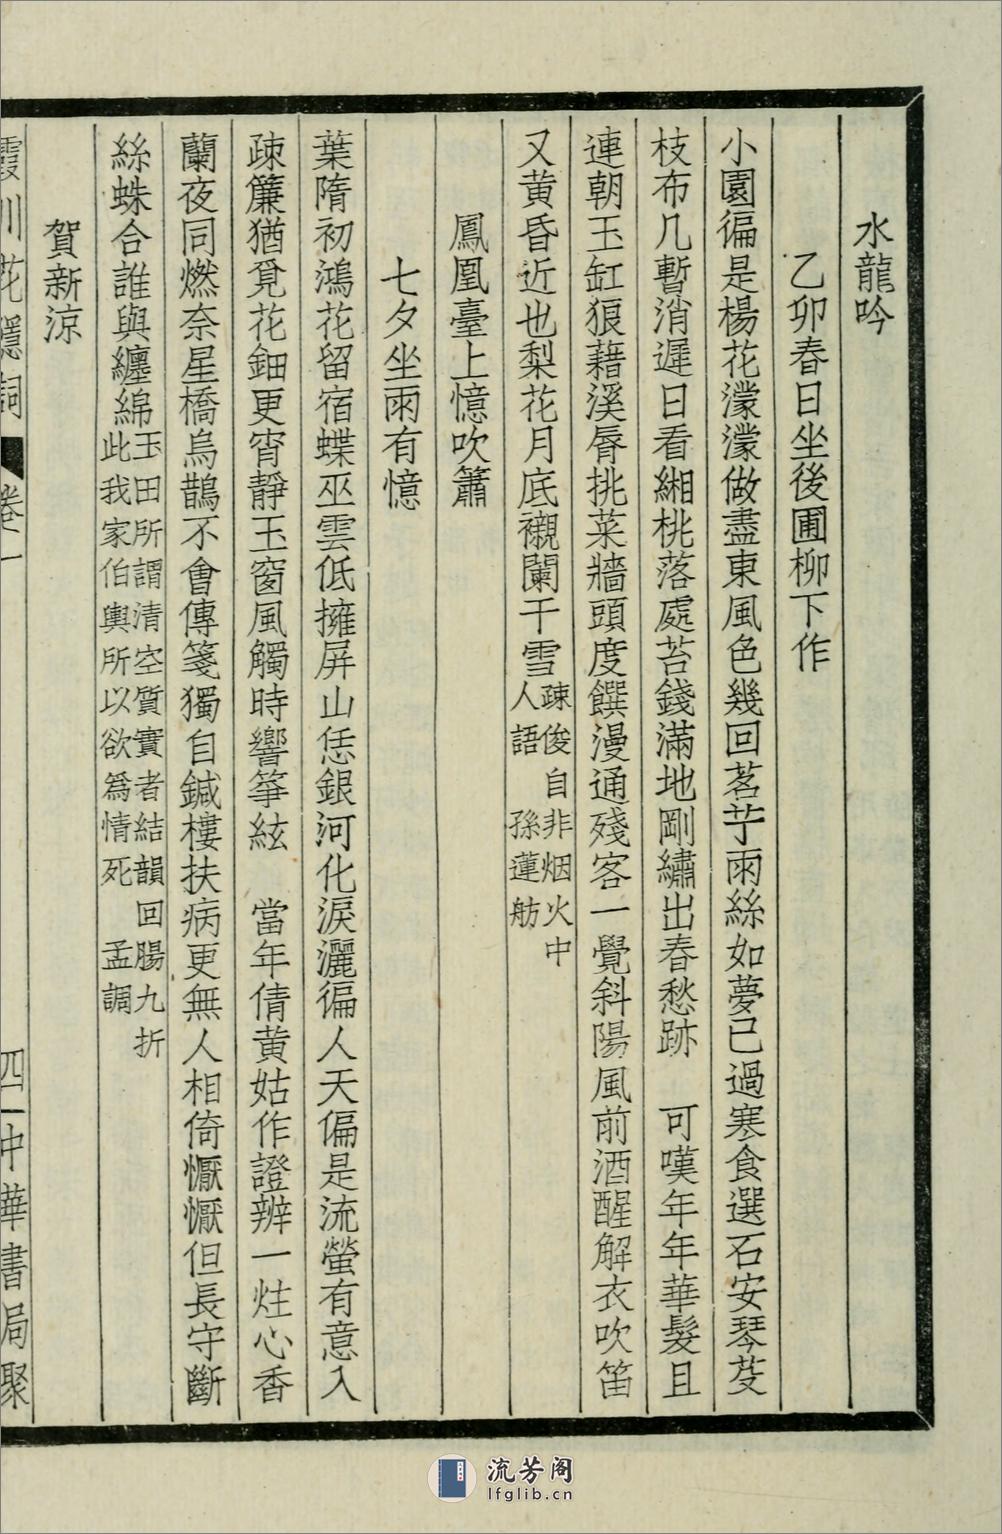 水龍吟
乙卯春日坐後圃柳下作
小園徧是楊花濛濛做盡東風色幾回茗芋雨絲如夢已過寒食選石安琴芟
枝布几暫消遲日看緗桃落處苔錢滿地剛繡出春愁跡　可嘆年年華髮且
連朝玉缸狼藉溪脣挑菜牆頭度饌漫通殘客一覺斜陽風前酒醒解衣吹笛
又黃昏近也梨花月底襯闌干雪疎俊自非烟火中
人語　孫蓮舫
鳳凰臺上憶吹簫
七夕坐雨有憶
葉隋初鴻花留宿蝶巫雲低擁屏山恁銀河化淚灑徧人天偏是流螢有意入
疎簾猶覓花鈿更宵靜玉窗風觸時響箏絃　當年倩黃姑作證辦一炷心香
蘭夜同燃奈星橋烏鵲不會傳箋獨自鍼樓扶病更無人相倚懨懨但長守斷
絲蛛合誰與纏綿玉田所謂清空質實者結韻回腸九折
此我家伯輿所以欲為情死　孟調
賀新涼
霞川花隱詞　卷一　四　中華書局聚
流芳阁
lfglib.cn